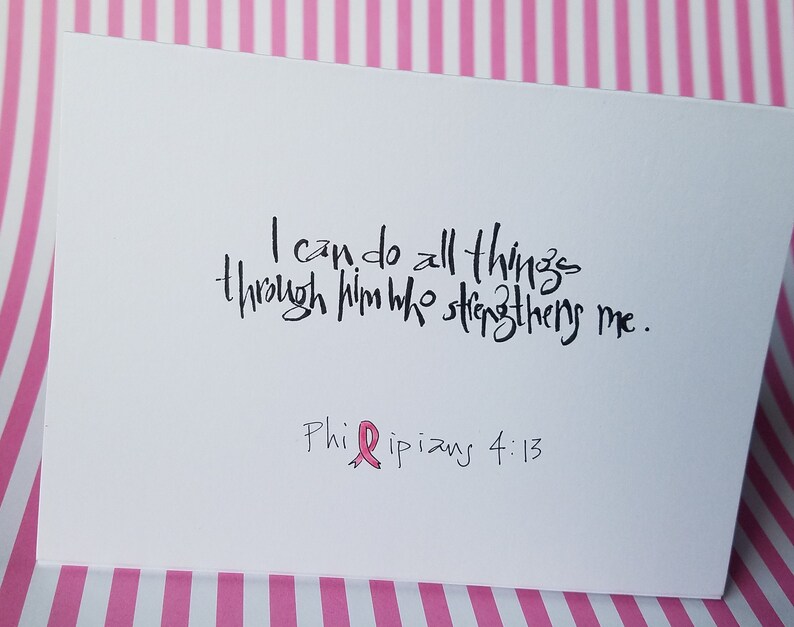 I can do all things
through him who strengthens me.
Philipians 4:13